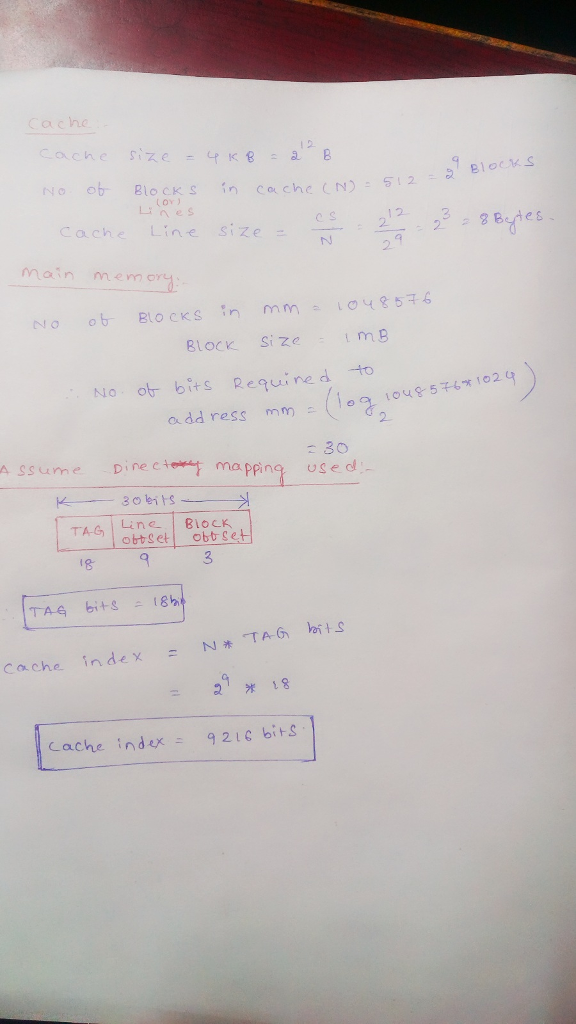 Cache:-
Cache size = 4KB = 2^12 B
No of Blocks in cache (N) = 512 = 2^9 Blocks
(or)
Lines
Cache Line size = CS/N = 2^12/2^9 = 2^3 = 8 Bytes.
main memory:-
No of Blocks in mm = 1048576
Block size = 1 MB
∴ No. of bits Required to
address mm = (log2 1048576*1024)
= 30
Assume Direct mapping used:-
30 bits
TAG Line offset Block offset
18 9 3
TAG bits = 18bit
Cache index = N * TAG bits
= 2^9 * 18
Cache index = 9216 bits.